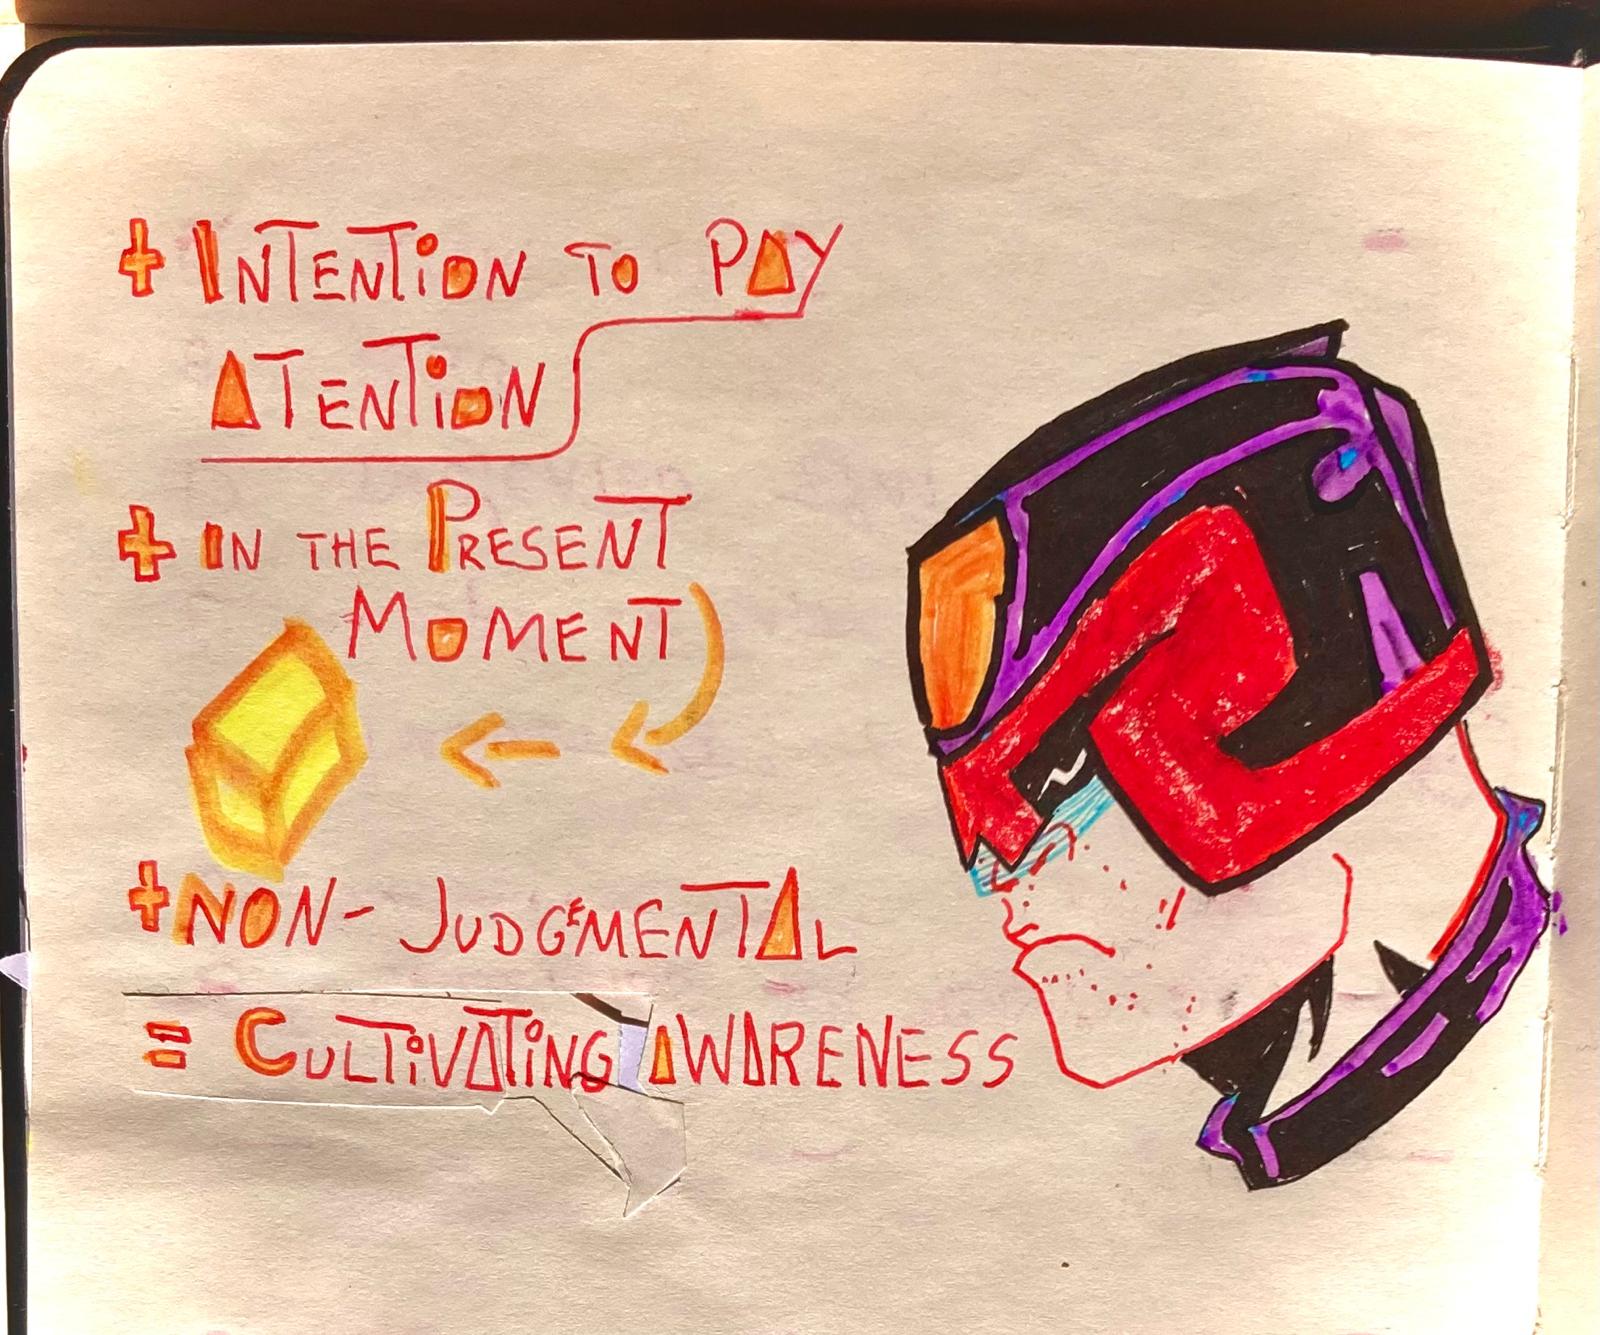 + INTENTION TO PAY
ATENTION
+ IN THE PRESENT
MOMENT
+ NON-JUDGEMENTAL
= CULTIVATING AWARENESS